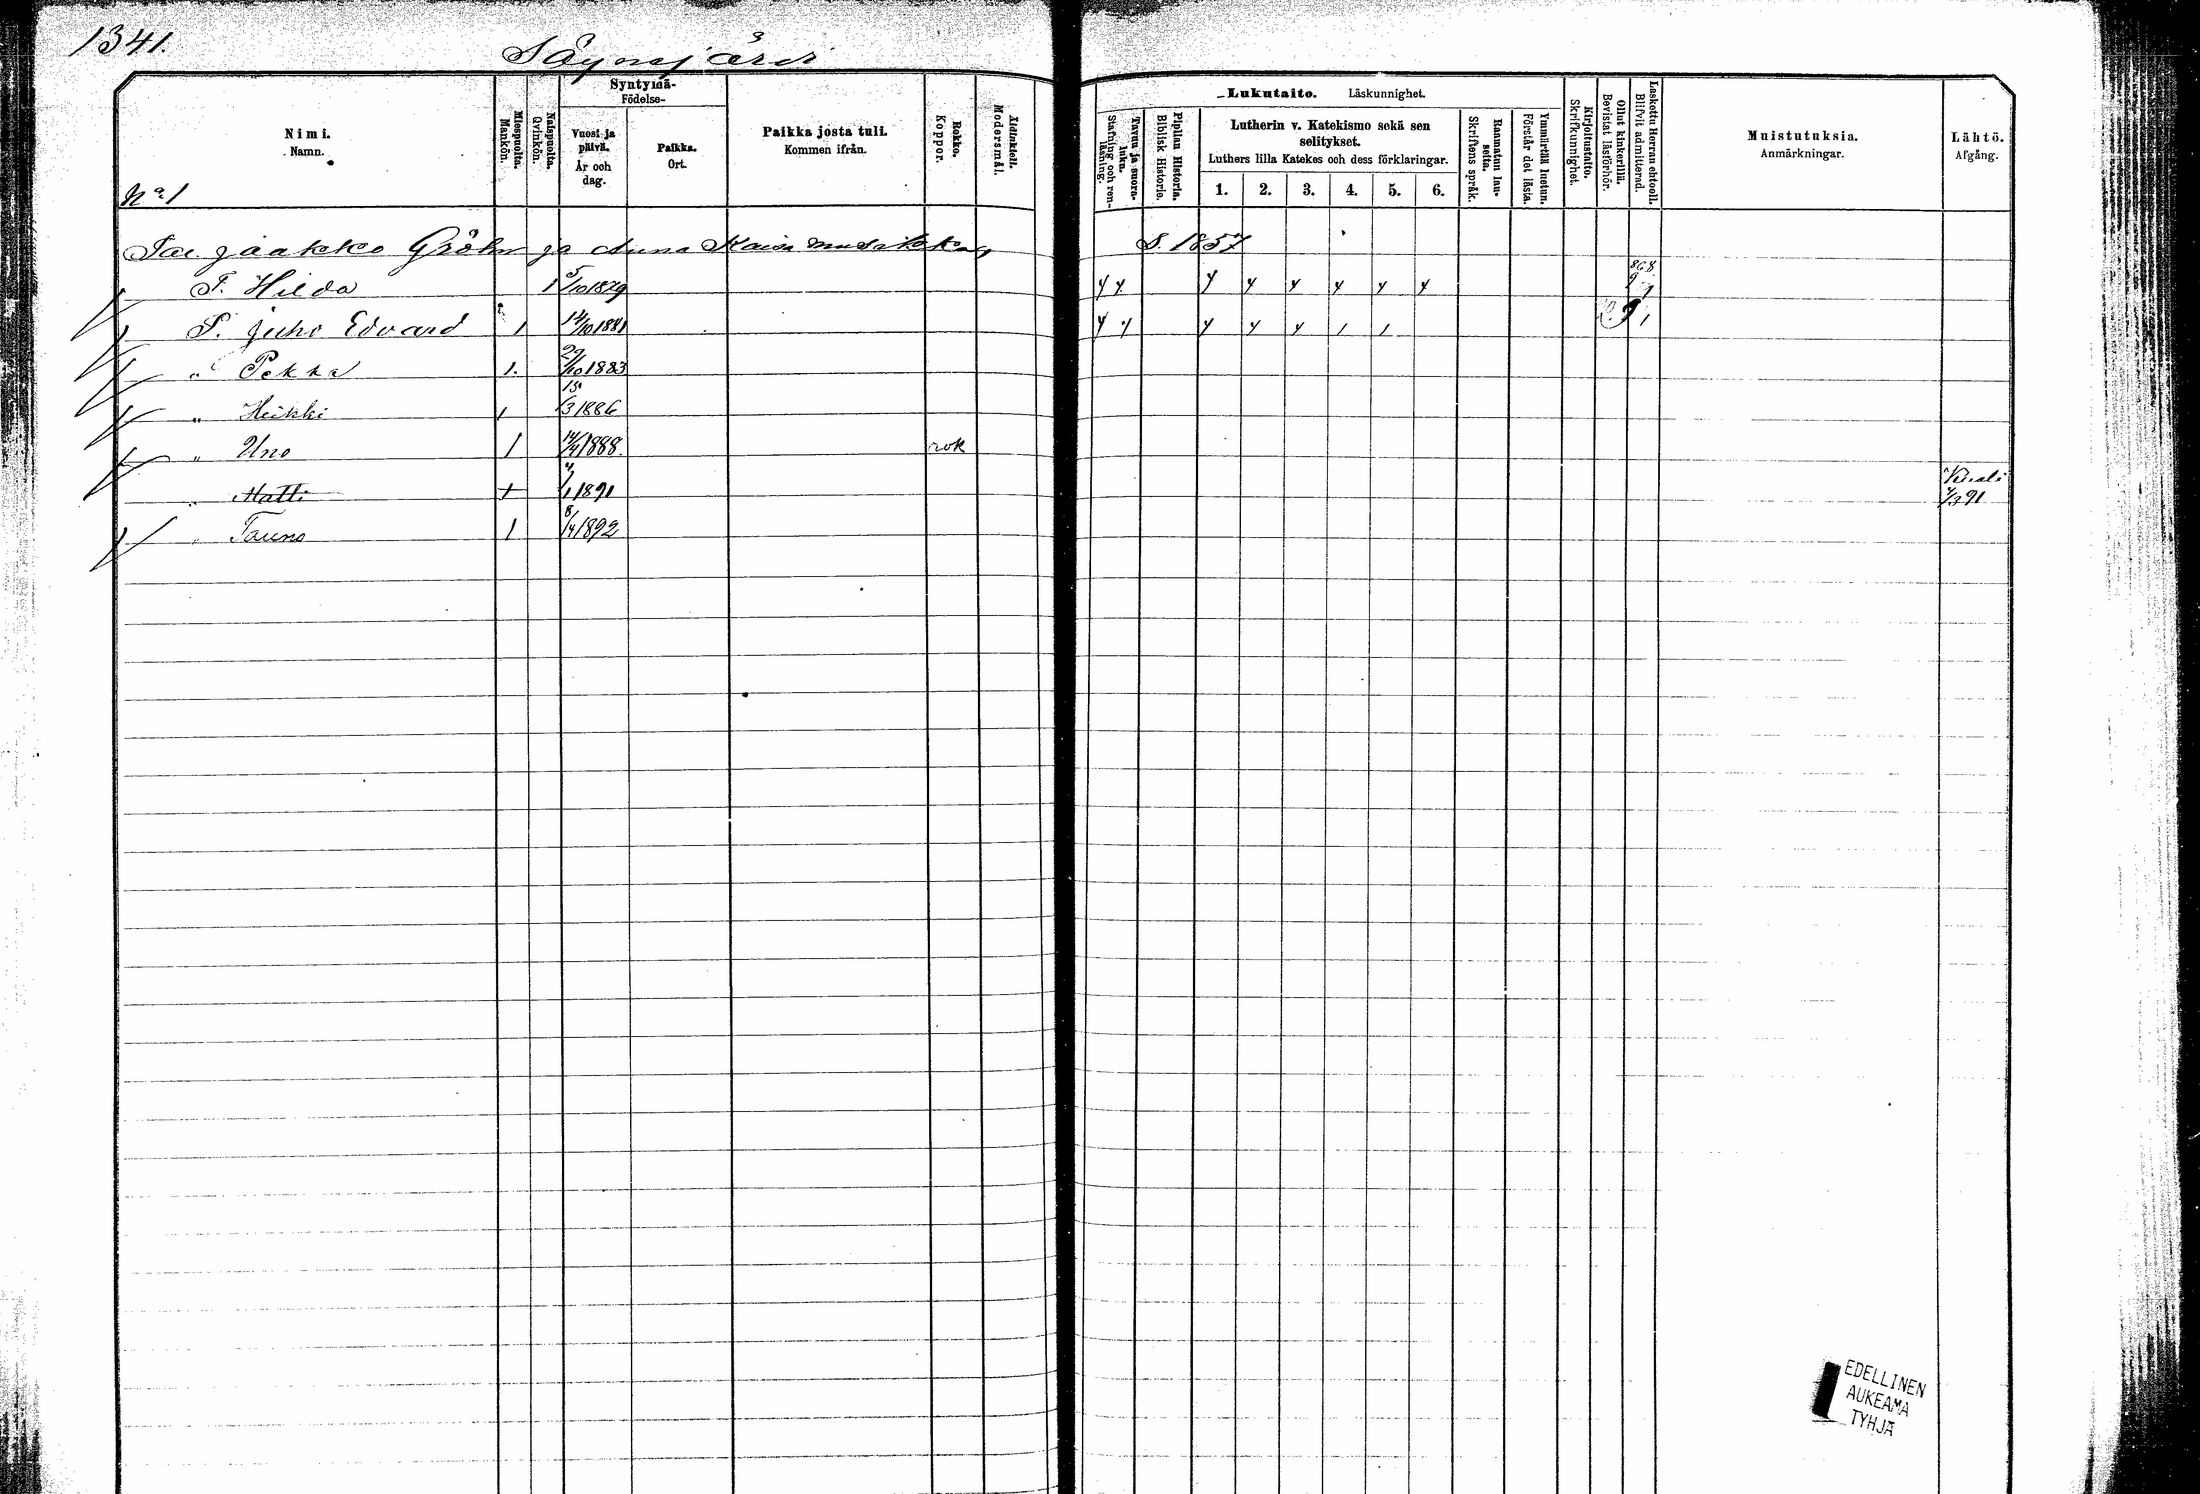 1341.
Säynejärvi 3
Syntymä-
Födelse-
Nimi.
Namn.
Miespuolta.
Mankön.
Naispuolta.
Qvinkön.
Vuosi ja päivä.
År och dag.
Paikka.
Ort.
Paikka josta tuli.
Kommen ifrån.
Rokko.
Koppor.
Äidinkieli.
Modersmål.
Lukutaito. Läskunnighet.
Tavuu ja suora-luku.
Stafning och ren-läsning.
Piplian Historia.
Biblisk Historie.
Lutherin v. Katekismo sekä sen
selitykset.
Luthers lilla Katekes och dess förklaringar.
1. 2. 3. 4. 5. 6.
Raamatun lau-seita.
Skriftens språk.
Ymmärtää luetun.
Förstår det lästa.
Kirjoitustaito.
Skrifkunnighet.
Ollut kinkerillä.
Bevistat läsförhör.
Laskettu Herran ehtooll.
Blifvit admitterad.
Muistutuksia.
Anmärkningar.
Lähtö.
Afgång.
No 1
Jaakko Gröhn ja Anna Kaisa S. 1857
T. Hilda 1 5/10 1879 868
P. Juho Edvard 1 14/10 1881
" Pekka 1. 29/10 1883
" Heikki 1 15/3 1886
" Uno 1 14/4 1888. rok
" Matti 1 4/1 1891 Kuoli 4/3 91
" Tauno 1 8/4 1892
EDELLINEN
AUKEAMA
TYHJÄ